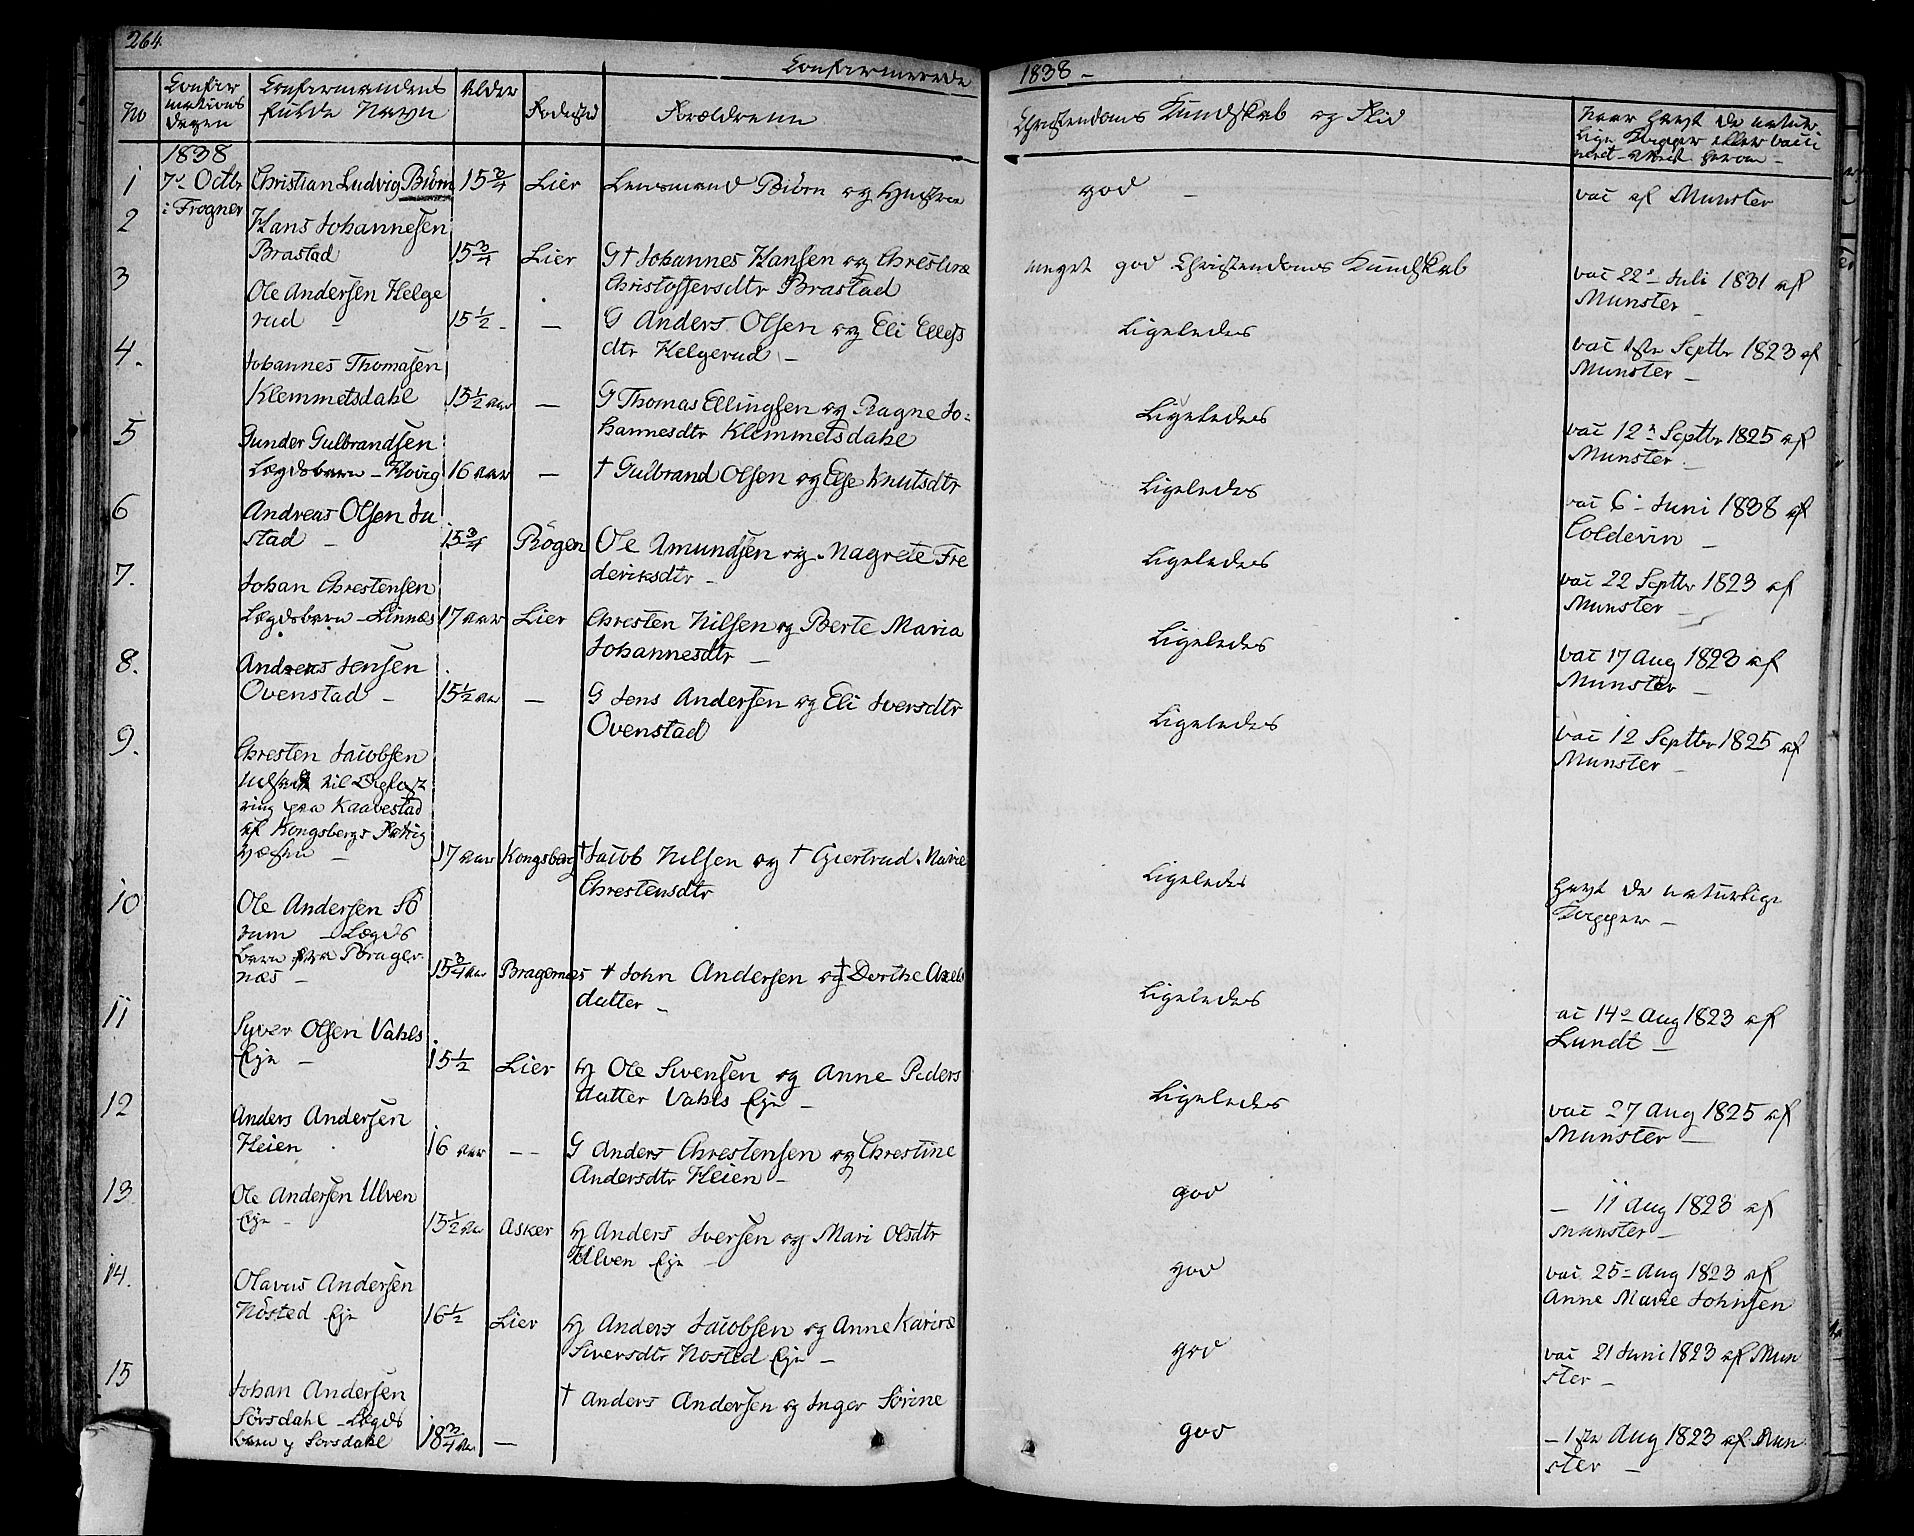 264
Confirmerede 1838 -
No
Confir
mations
dagen
Confirmandens
fulde Navn
Alder
Fødested
Forældrene
Christendoms Kundskab og Flid
havt de natur
lige Kopper eller vacci
neret
1838
1 7de Octbr Christian Ludvig Biørn 15 3/4 Lier Lensmand Biørn og Hustrue god - vac af Munster
i Frogner
2 Hans Johannesen
Brastad 15 3/4 Lier G † Johannes Hansen og Christine
Christoffersdtr Brastad
meget god Christendoms Kundskab
vac 22de Juli 1831 af
Munster -
3 Ole Andersen Helge
rud - 15 1/2 - - G Anders Olsen og Eli Ellefs
dtr Helgerud -
Ligeledes
vac 1ste Septbr 1823 af
Munster -
4. Johannes Thomasen
Klemmetsdahl 15 1/2 aar - G Thomas Ellingsen og Ragne Jo=
hannesdtr Klemmetsdahl
Ligeledes
vac 12te Septbr 1825 af
Munster -
5 Gunder Gulbrandsen
Lægdsbarn - Hovig 16 aar - † Gulbrand Olsen og Else Knutsdtr
Ligeledes
vac 6te Juni 1838 af
Coldevin -
6 Andreas Olsen Ju
stad - 15 3/4 Røgen Ole Amundsen og Magrete Fre
deriksdtr -
Ligeledes
vac 22 Septbr 1823 af
Munster -
7. Johan Chrestensen
Lægdsbarn - Linnæs 17 aar Lier Chresten Nilsen og Berte Maria
Johannesdtr -
Ligeledes
vac 17 Aug 1823 af
Munster -
8. Andreas Jensen
Ovenstad - 15 1/2 aar - G Jens Andersen og Eli Iversdtr
Ovenstad
Ligeledes
vac 12 Septbr 1825 af
Munster -
9. Chresten Jacobsen
til Opfost
ring paa Kaavestad
af Kongsbergs Fattig
væsen - 17 aar Kongsberg † Jacob Nilsen og † Giertrud Marie
Chrestensdtr
Ligeledes
havt de naturlige
Kopper -
10 Ole Andersen Sö
rum - Lægds
barn fra Brager
næs - 15 3/4 aar Bragernæs † John Andersen og † Dorthe Axels
datter -
Ligeledes
ac 14de Aug 1823 af
Lundt -
11 Syver Olsen Vahls
Eje - 15 1/2 Lier Hj Ole Svensen og Anne Peders
datter Vahls Eje -
Ligeledes
vac 27 Aug 1825 af
Munster -
12 Anders Andersen
Heien 16 aar - - G Anders Chrestensen og Chrestine
Andersdtr Heien -
god
- 11 Aug 1823 af
Munster -
13 Ole Andersen Ulven
Eje - 15 1/2 aar Asker Hj Anders Iversen og Mari Olsdtr
Ulven Eje -
god
vac 25de Aug 1823 af
Anne Marie Johnsen
14. Olavus Andersen
Nøsted Eje 16 1/2 Lier Hj Anders Jacobsen og Anne Karine
Siversdtr Nøsted Eje -
god
vac 21 Juni 1823 af Mun
ster -
15 Johan Andersen
Sørsdahl - Lægds
barn Sørsdahl 18 3/4 aar - † Anders Andersen og Inger Sørine
god
- 1ste Aug 1823 af Mun
ster -